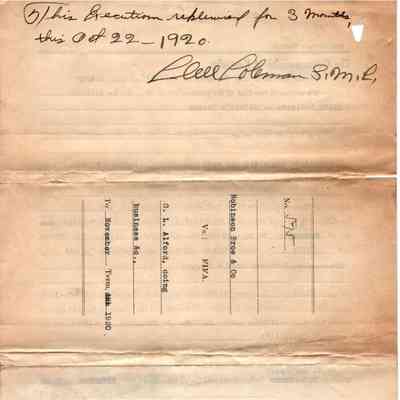 This Execution renewed for 3 months,
this Oct 22 - 1920.
Clell Coleman S.M.C,
No. 595
Robinson Bros & Co
Vs: FIFA.
G. L. Alford, doing
Business As.,
To November Term, 1920.